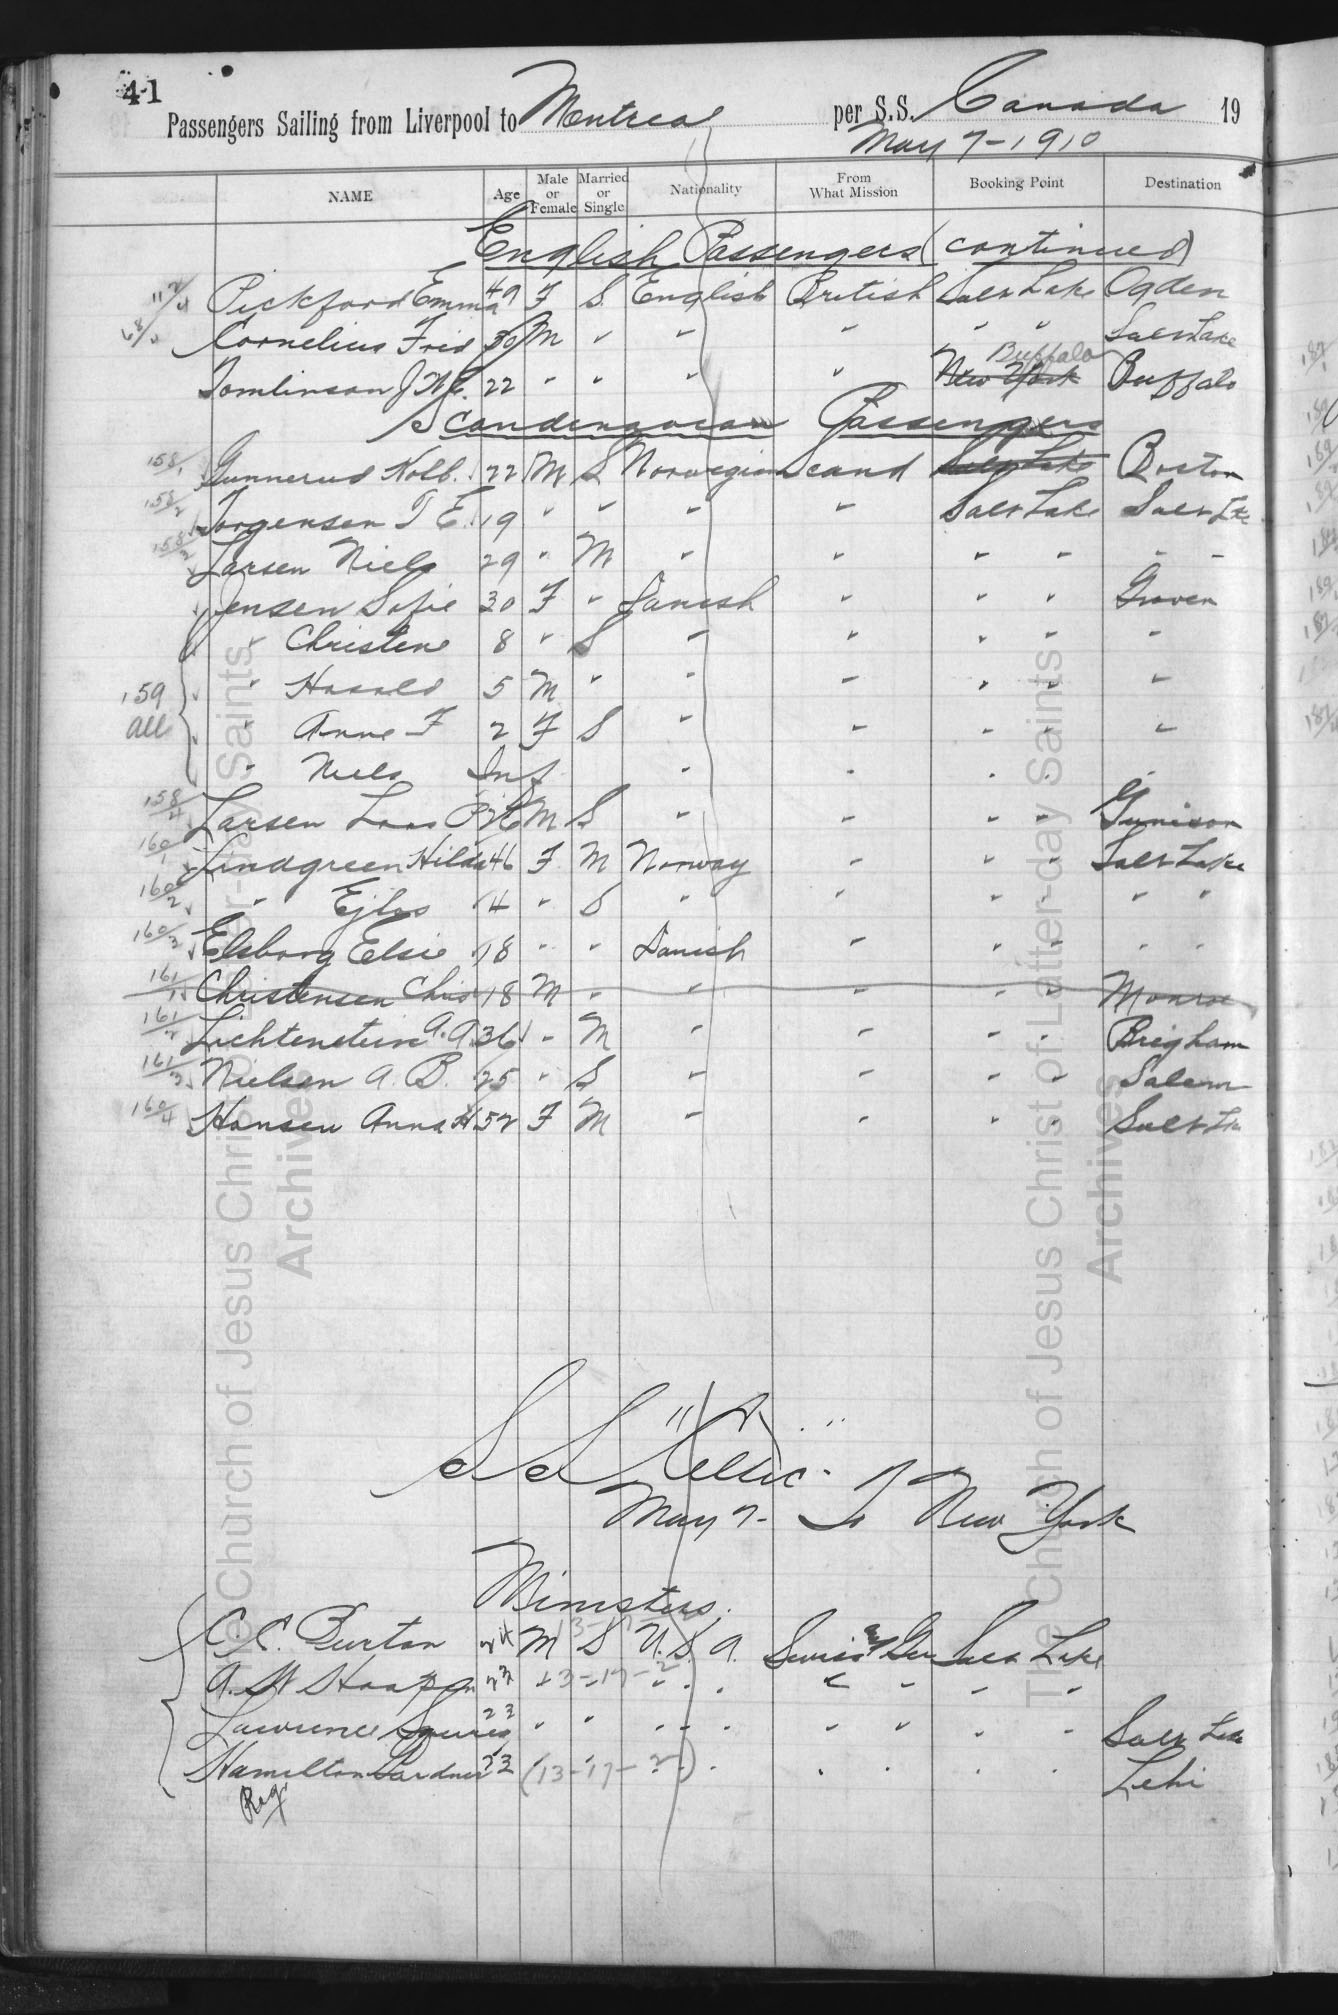 41
Passengers Sailing from Liverpool to Montreal per S.S. Canada 19
May 7-1910
NAME Age Male or Female Married or Single Nationality From What Mission Booking Point Destination
English Passengers (continued)
112/4 Pickford Emma 49 F S. English British Salt Lake Ogden
68/ Cornelius Fred 30 M " " " " " Salt Lake
Buffalo
Tomlinson J W 22 " " " " New York Buffalo
Scandinavian Passengers
158/1 Gunnerud Kolb. 22 M S Norwegian Scand Salt Lake Boston
158/2 Jorgensen T E. 19 " " " " Salt Lake Salt Lke
158/3 Larsen Niels 29 " M " " " " " "
Jensen Sofie 30 F " Danish " " "
" Christene 8 " S " " " " "
" Harald 5 M " " " " " "
159 All " Anne F 2 F S " " " " "
" Niels Inf " " " " "
158/4 Larsen Lars P 26 M S " " " " Gunison
160/1 Lindgreen Hilda 46 F M Norway " " " Salt Lake
160/2 " 14 " S " " " " " "
160/3 Elsborg Elsie 18 " " Danish " " " " "
161/1 Christensen Chris 18 M " " " " " Monroe
161/2 Lichtenstein A. A 36 " M " " " " Brigham
161/3 Nielsen A. B. 25 " S " " " " Salem
160/4 Hansen Anna H 52 F M " " " " Salt Lk
S S "Celtic"
May 7- To New York
Ministers.
13-17-2
C. C. Burton M S U. S. A. Swiss and Ger Salt Lake
A. W 13-17-2 " " " " " "
Lawrence Squires 23 " " " " " " " " " Salt Lke
Hamilton Gardner 23 (13-17-2) " " " " " Lehi
Reg
The Church of Jesus Christ of Latter-day Saints
Archives
The Church of Jesus Christ of Latter-day Saints
Archives